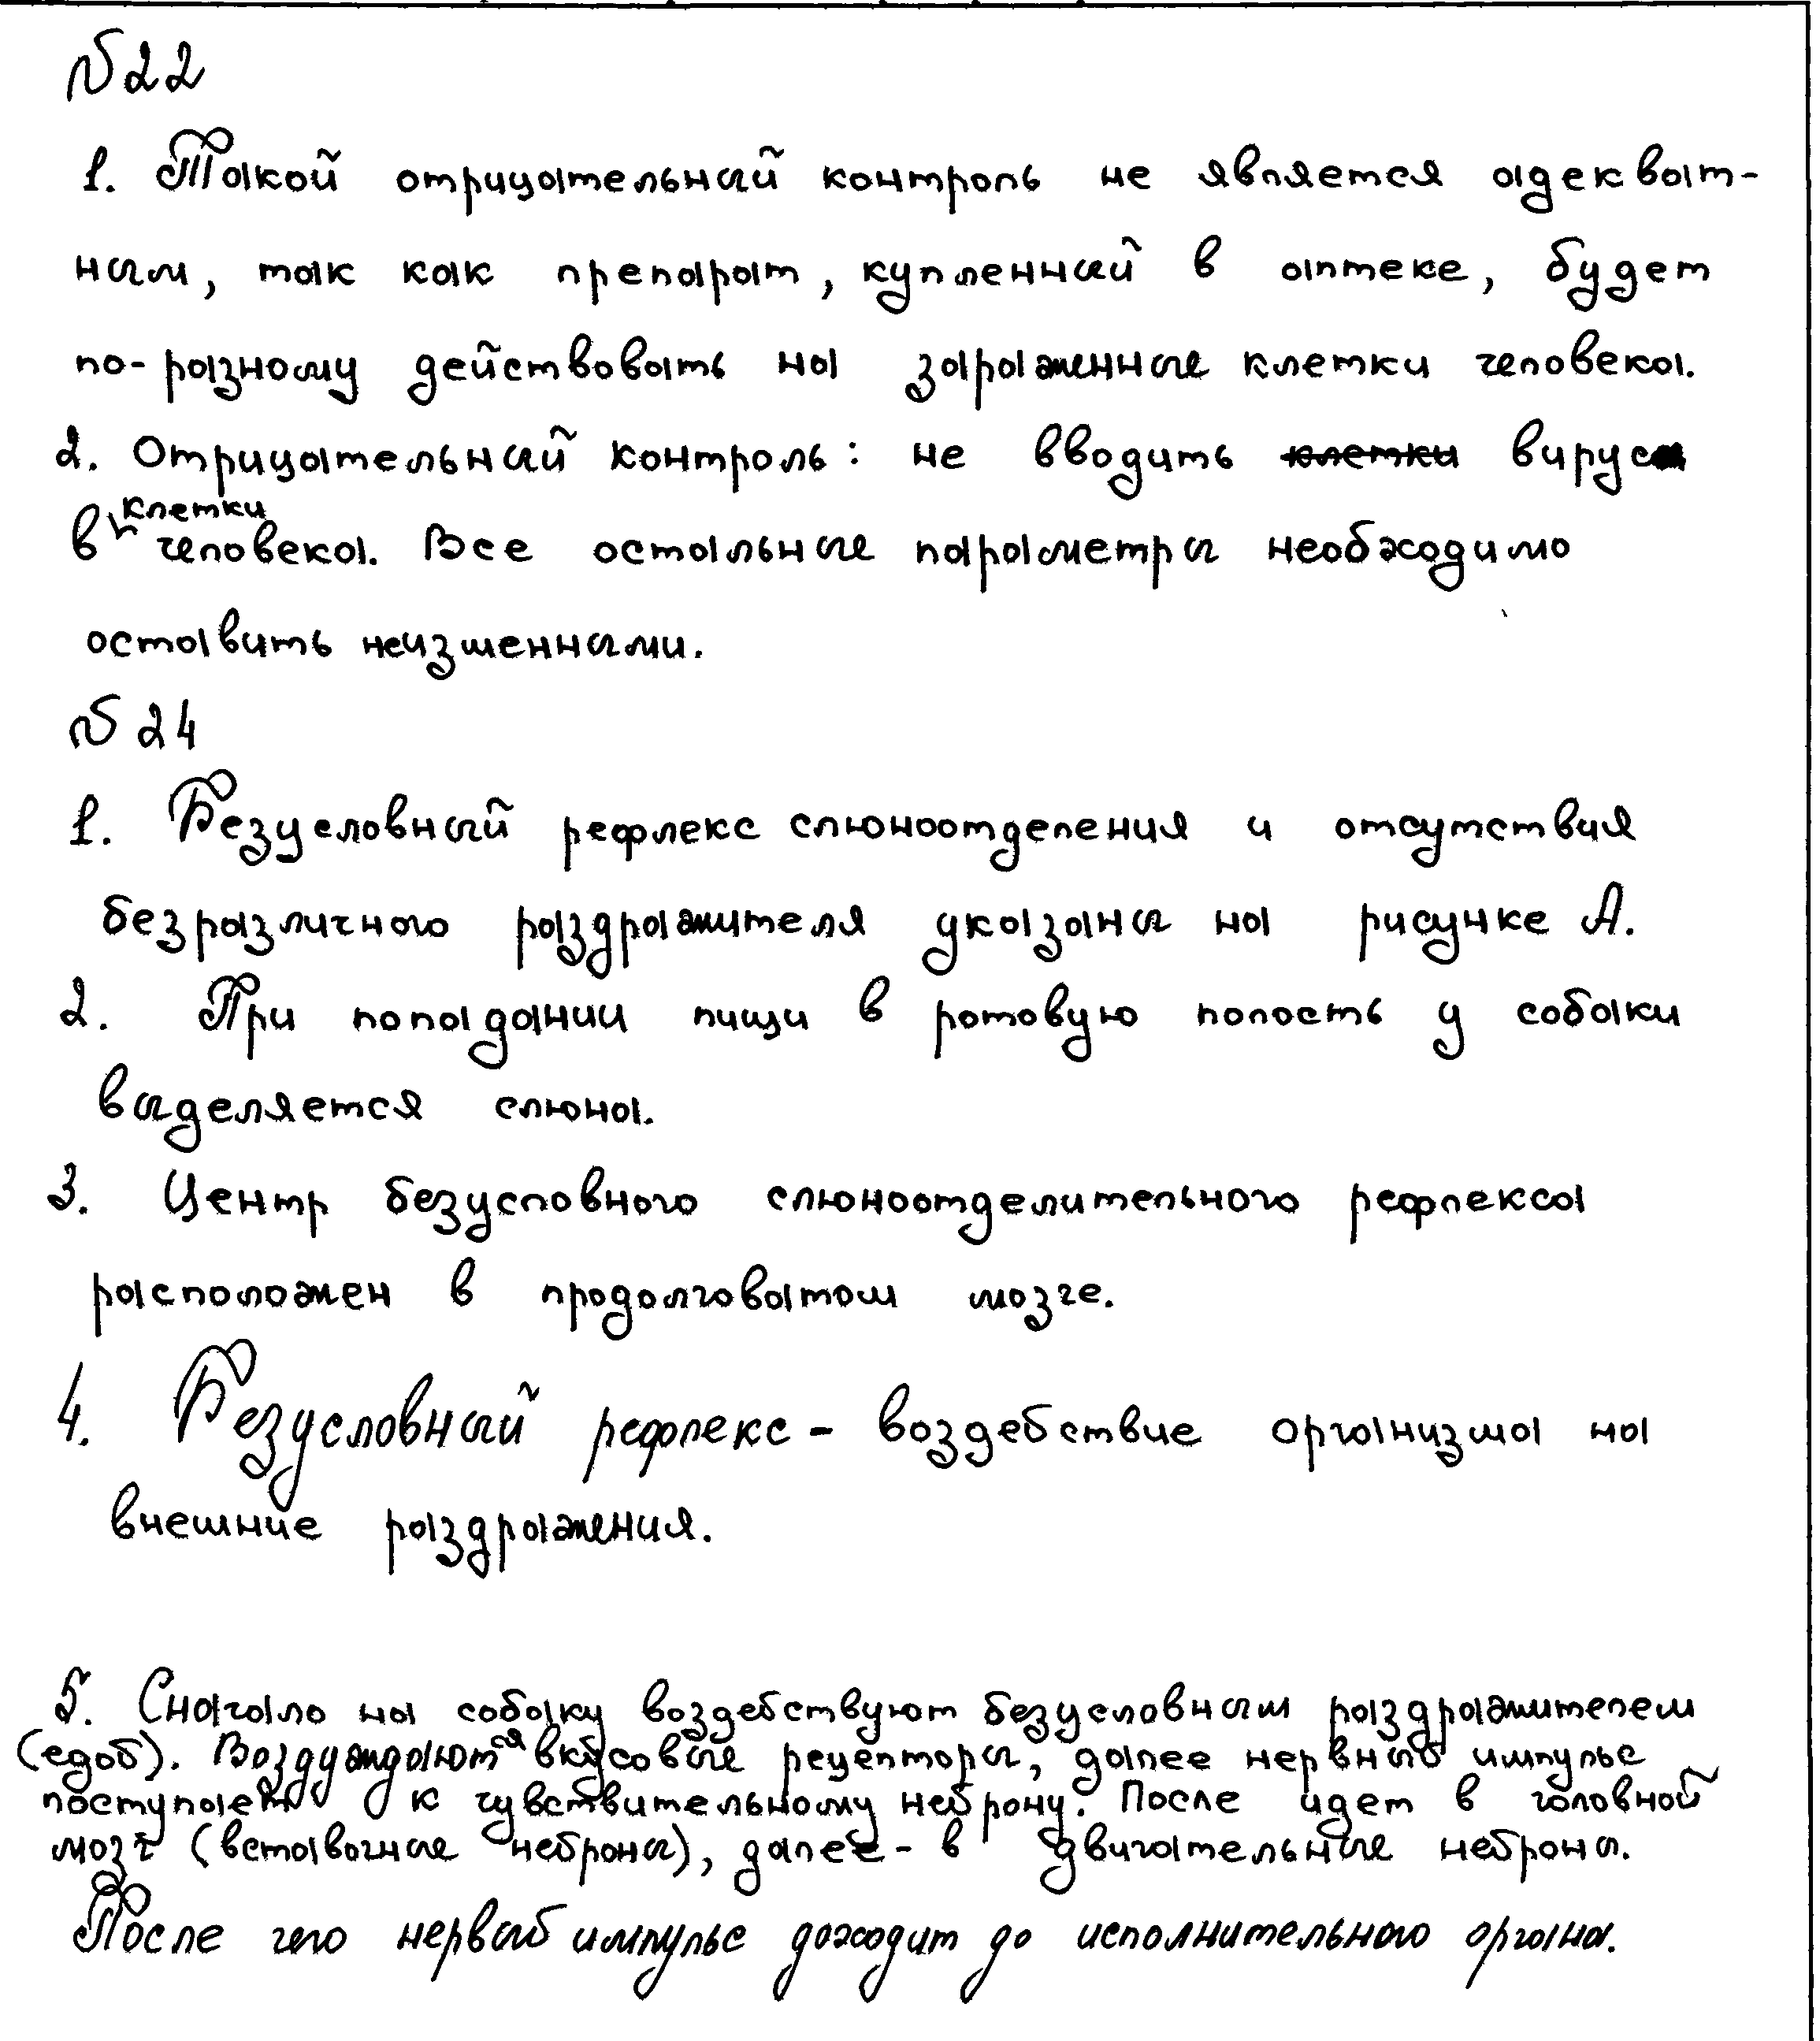 №22
1. Такой отрицательный контроль не является адекват-
ным, так как препарат, купленный в аптеке, будет
по-разному действовать на зараженные клетки человека.
2. Отрицательный контроль: не вводить ~~клетки~~ вирус
в клетки человека. Все остальные параметры необходимо
оставить неизменными.
№ 24
1. Безусловный рефлекс слюноотделения и отсутствия
безразличного раздражителя указаны на рисунке А.
2. При попадании пищи в ротовую полость у собаки
выделяется слюна.
3. Центр безусловного слюноотделительного рефлекса
расположен в продолговатом мозге.
4. Безусловный рефлекс - воздействие организма на
внешние раздражения.
5. Сначало на собаку воздействуют безусловным раздражителем
(едой). Воздуждаются вкусовые рецепторы, далее нервный импульс
поступает к чувствительному нейрону. После идет в головной
мозг (вставочные нейроны), далее - в двигательные нейроны.
После чего нервый импульс доходит до исполнительного органа.